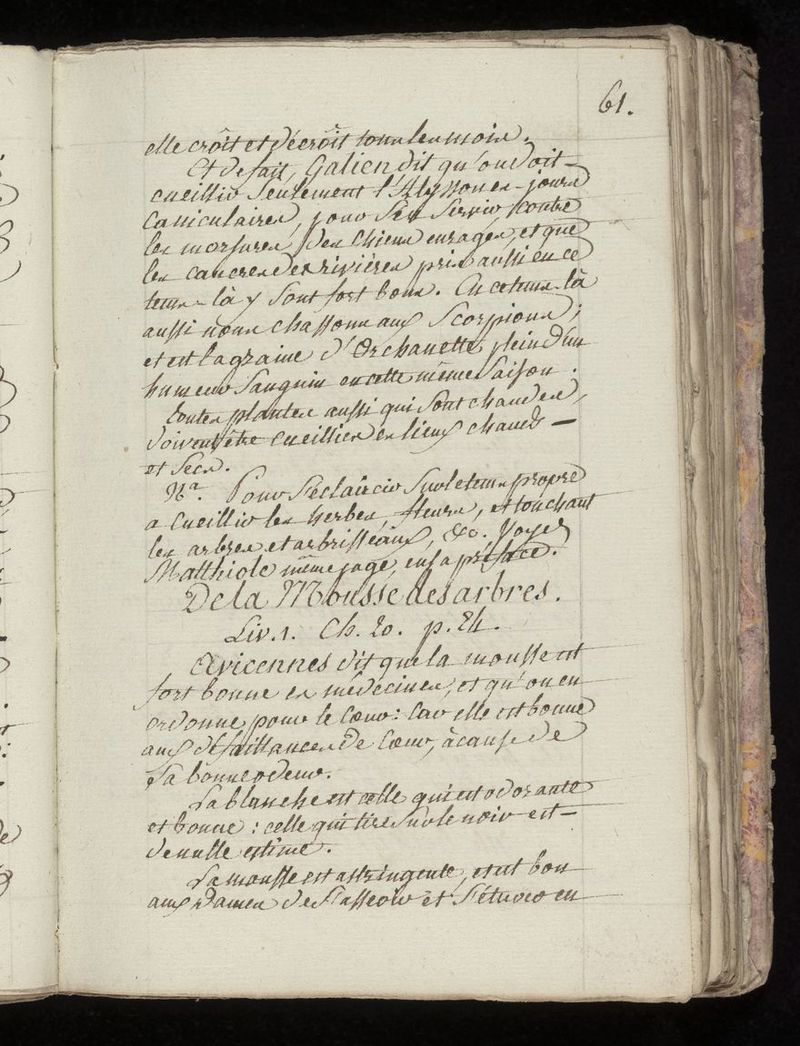 61.
elle croît et décroît tous les mois.
Et de fait, Galien dit qu'on doit
cueillir seulement l'Alysson es jours
caniculaires, pour s'en servir contre
les morsures des chiens enragés, et que
les cancres des rivières pris aussi en ce
tems-là y sont fort bons. En ce tems-là
aussi nous chassons aux Scorpions ;
et est la graine d'Orchanette plein d'un
humeur sanguin en cette même saison.
toutes plantes aussi qui sont chaudes,
doivent être cueillies en lieux chauds
et secs.
Na. Pour s'éclaircir sur le tems propre
a cueillir les herbes, fleurs, et touchant
les arbres et arbrisseaux, &c. Voyés
Matthiole même page, en sa préface.
De la Mousse des arbres.
Liv. 1. Ch. 20. p. 24.
Avicennes dit que la mousse est
fort bonne es médecines, et qu'on en
ordonne pour le cœur : car elle est bonne
aux défaillances de cœur, à cause de
sa bonne odeur.
La blanche est celle qui est odorante
et bonne : celle qui tire sur le noir est
de nulle estime.
La mousse est astringente, et est bon
aux dames de s'asseoir et s'étuver en